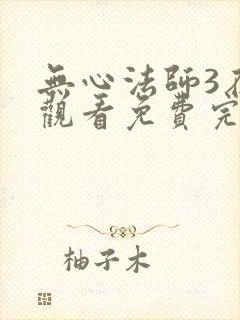 無心法師3
觀看免費完
柚子木